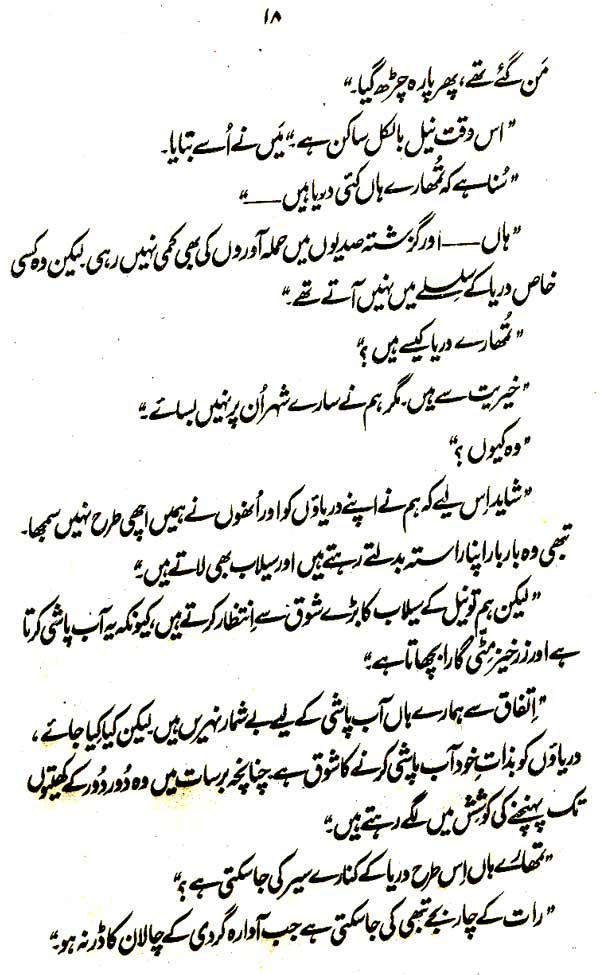 ۱۸
مَن گئے تھے، پھر پارہ چڑھ گیا۔“
”اس وقت نیل بالکل ساکن ہے۔“ مَیں نے اُسے بتایا۔
”سُنا ہے کہ تُمھارے ہاں کئی دریا ہیں ——“
”ہاں —— اور گزشتہ صدیوں میں حملہ آوروں کی بھی کمی نہیں رہی۔ لیکن وہ کسی
خاص دریا کے سِلسلے میں نہیں آتے تھے۔“
”تُمھارے دریا کیسے ہیں؟“
”خیریت سے ہیں۔ مگر ہم نے سارے شہر اُن پر نہیں بسائے۔“
”وہ کیوں؟“
”شاید اِس لیے کہ ہم نے اپنے دریاؤں کو اور اُنھوں نے ہمیں اچھی طرح نہیں سمجھا۔
تبھی وہ بار بار اپنا راستہ بدلتے رہتے ہیں اور سیلاب بھی لاتے ہیں۔“
”لیکن ہم تو نیل کے سیلاب کا بڑے شوق سے اِنتظار کرتے ہیں، کیونکہ یہ آب پاشی کرتا
ہے اور زرخیز مٹّی گارا بچھاتا ہے۔“
”اِتفاق سے ہمارے ہاں آب پاشی کے لیے بے شمار نہریں ہیں۔ لیکن کیا کیا جائے،
دریاؤں کو بذاتِ خود آب پاشی کرنے کا شوق ہے۔ چنانچہ برسات میں وہ دُور دُور کے کھیتوں
تک پہنچنے کی کوشِش میں لگے رہتے ہیں۔“
”تمھارے ہاں اِس طرح دریا کے کنارے سیر کی جا سکتی ہے؟“
”رات کے چار بجے تبھی کی جا سکتی ہے جب آوارہ گردی کے چالان کا ڈر نہ ہو۔“